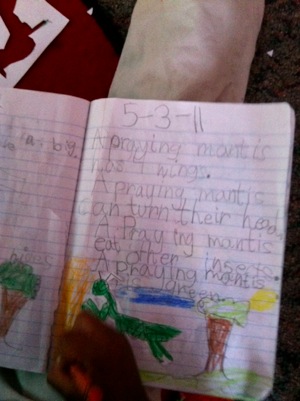 a big.
5-3-11
A praying mantis
has wings.
A praying mantis
can turn their head.
A praying mantis
eat other insects.
A praying mantis